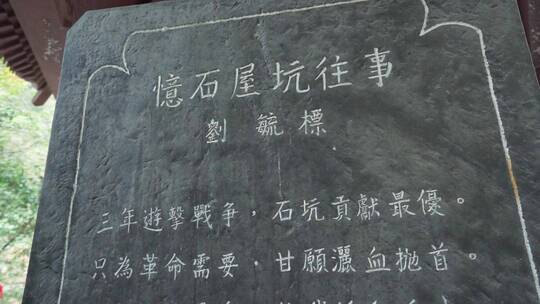 憶石屋坑往事
劉毓標
三年遊擊戰争，石坑貢獻最優。
只為革命需要，甘願灑血抛首。